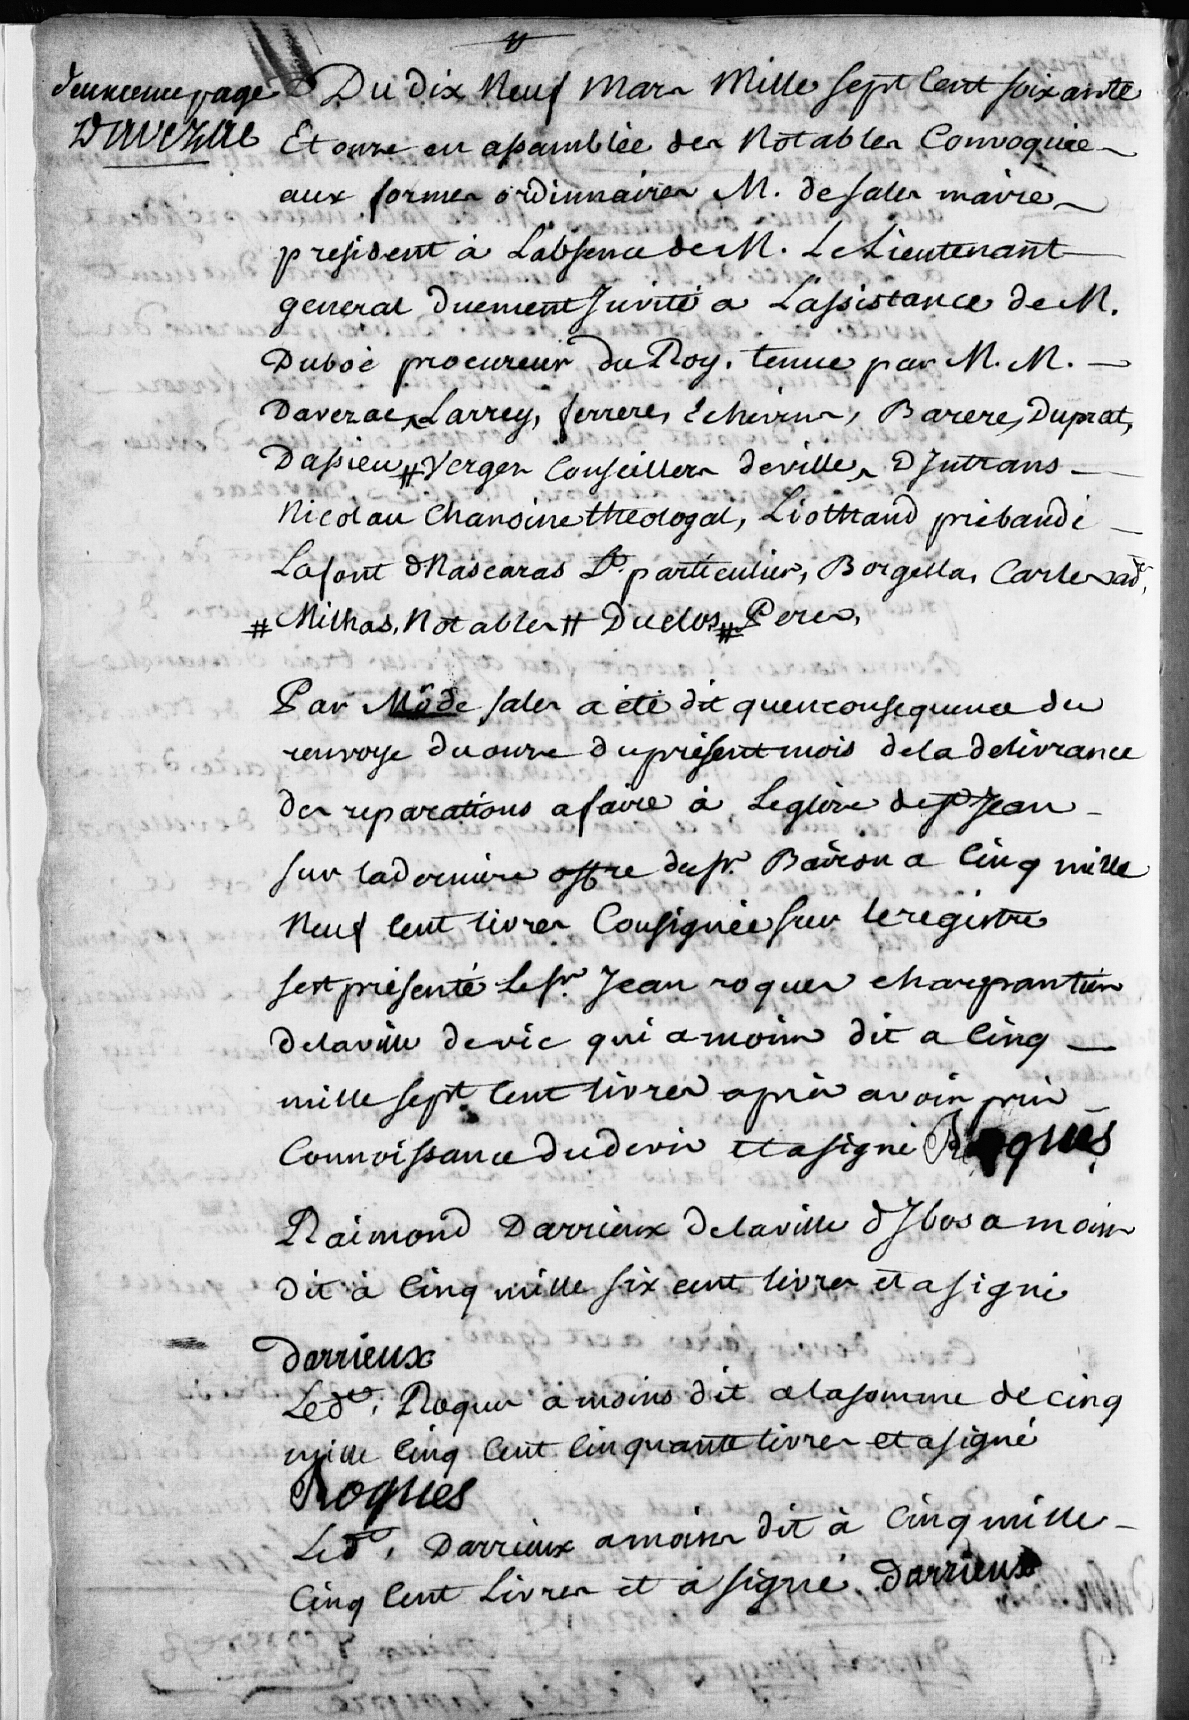 deuxieme page
Davezac
Du dix Neuf Mars Mille sept Cent soixante
Et onze en assamblée des Notables Convoquée
aux formes ordinnaires M. de sales maire
president à L'absence de M. Le Lieutenant
general duement Invité a L'assistance de M.
Duboé procureur du Roy. tenue par M. M.
Daverac, Larrey, ferrere, Echevins, Barere, Duprat,
Dassieu # Verges Conseillers de ville, D Intrans
Nicolau Chanoine theologal, Liothaud prébandé
Lafont d Mascaras Lt. particulier, Borgella, Carles adt.
# Milhas, Notables # Duclos # Peres,
Par Mo de sales a été dit qu'en consequence du
renvoye du onze du présent mois de la delivrance
des reparations a faire à Leglise de St Jean
sur la derniere offre du sr. Bairon a Cinq mille
Neuf Cent livres Consignée sur le registre
sest présenté Le sr. Jean roques charpantier
de la ville de vic qui a moins dit a Cinq
mille sept Cent livres après avoir pris
Connoissance du devis et a signé Roques
Raimond Darrieux de la ville d'Ibos a moins
dit à Cinq mille six cent livres et a signé
Darrieux
Led. Roques a moins dit a la somme de cinq
mille Cinq Cent Cinquante livres et a signé
Roques
Led. Darrieux a moins dit à Cinq mille
Cinq Cent Livres et a signé Darrieux